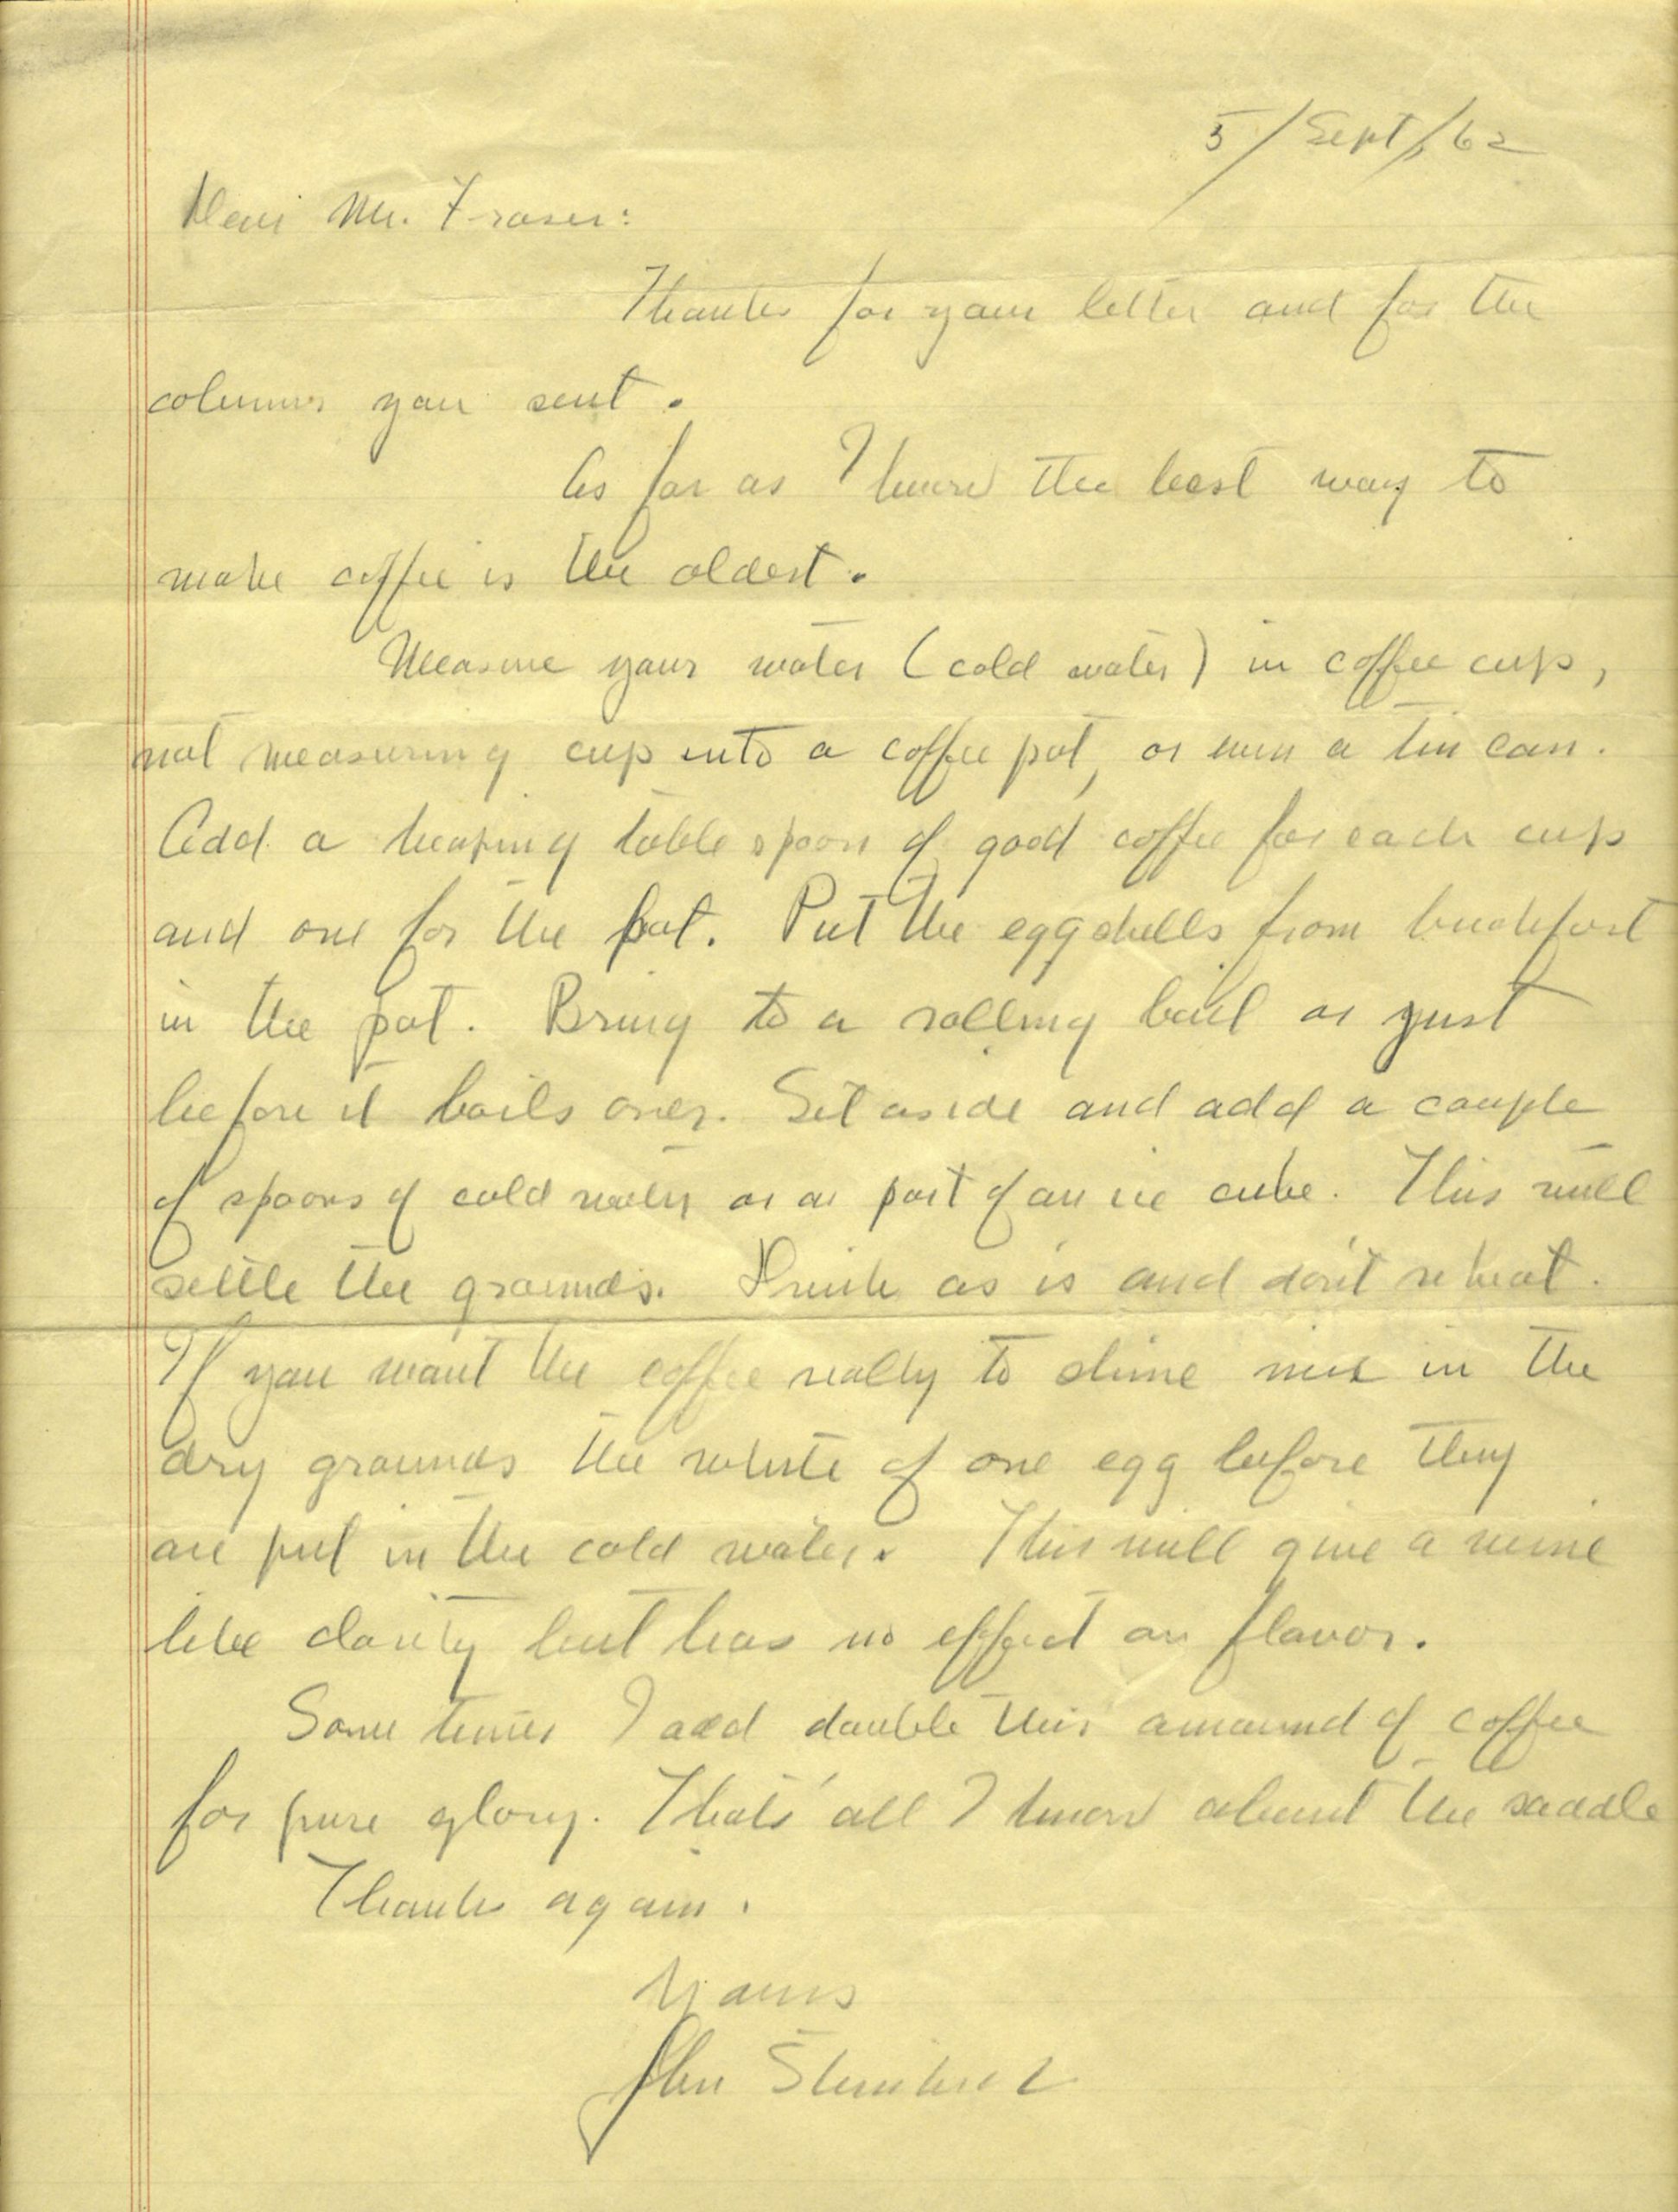 5/Sept/62
Dear Mr. Fraser:
Thanks for your letter and for the
columns you sent.
As far as I know the best way to
make coffee is the oldest.
Measure your water (cold water) in coffee cup,
not measuring cup into a coffee pot, or even a tin can.
Add a heaping table spoon of good coffee for each cup
and one for the pot. Put the eggshells from breakfast
in the pot. Bring to a rolling boil or just
before it boils over. Set aside and add a couple
of spoons of cold water or a part of an ice cube. This will
settle the grounds. Drink as is and don't reheat.
If you want the coffee really to shine mix in the
dry grounds the white of one egg before they
are put in the cold water. This will give a wine
like clarity but has no effect on flavor.
Some times I add double this amound of coffee
for pure glory. That's all I know about the saddle
Thanks again.
Yours
John Steinbeck